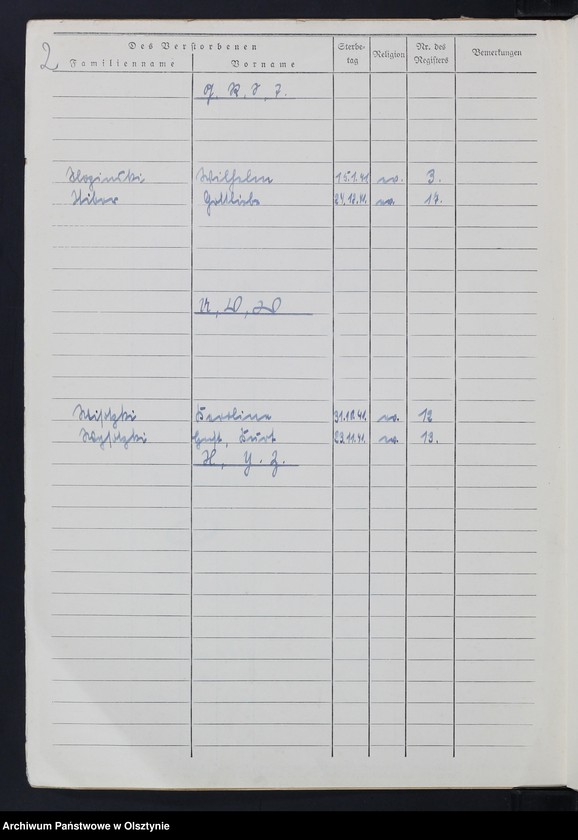 2
Des Verstorbenen
Sterbe-
tag
Religion
Nr. des
Registers
Bemerkungen
Familienname Vorname
Wilhelm 15.1.41 ev. 3.
Gottliebe 24.12.41. ev. 14.
U, V, W
Karoline 31.10.41. ev. 12
Kurt 23.11.41. ev. 13.
X, Y. Z.
Archiwum Państwowe w Olsztynie